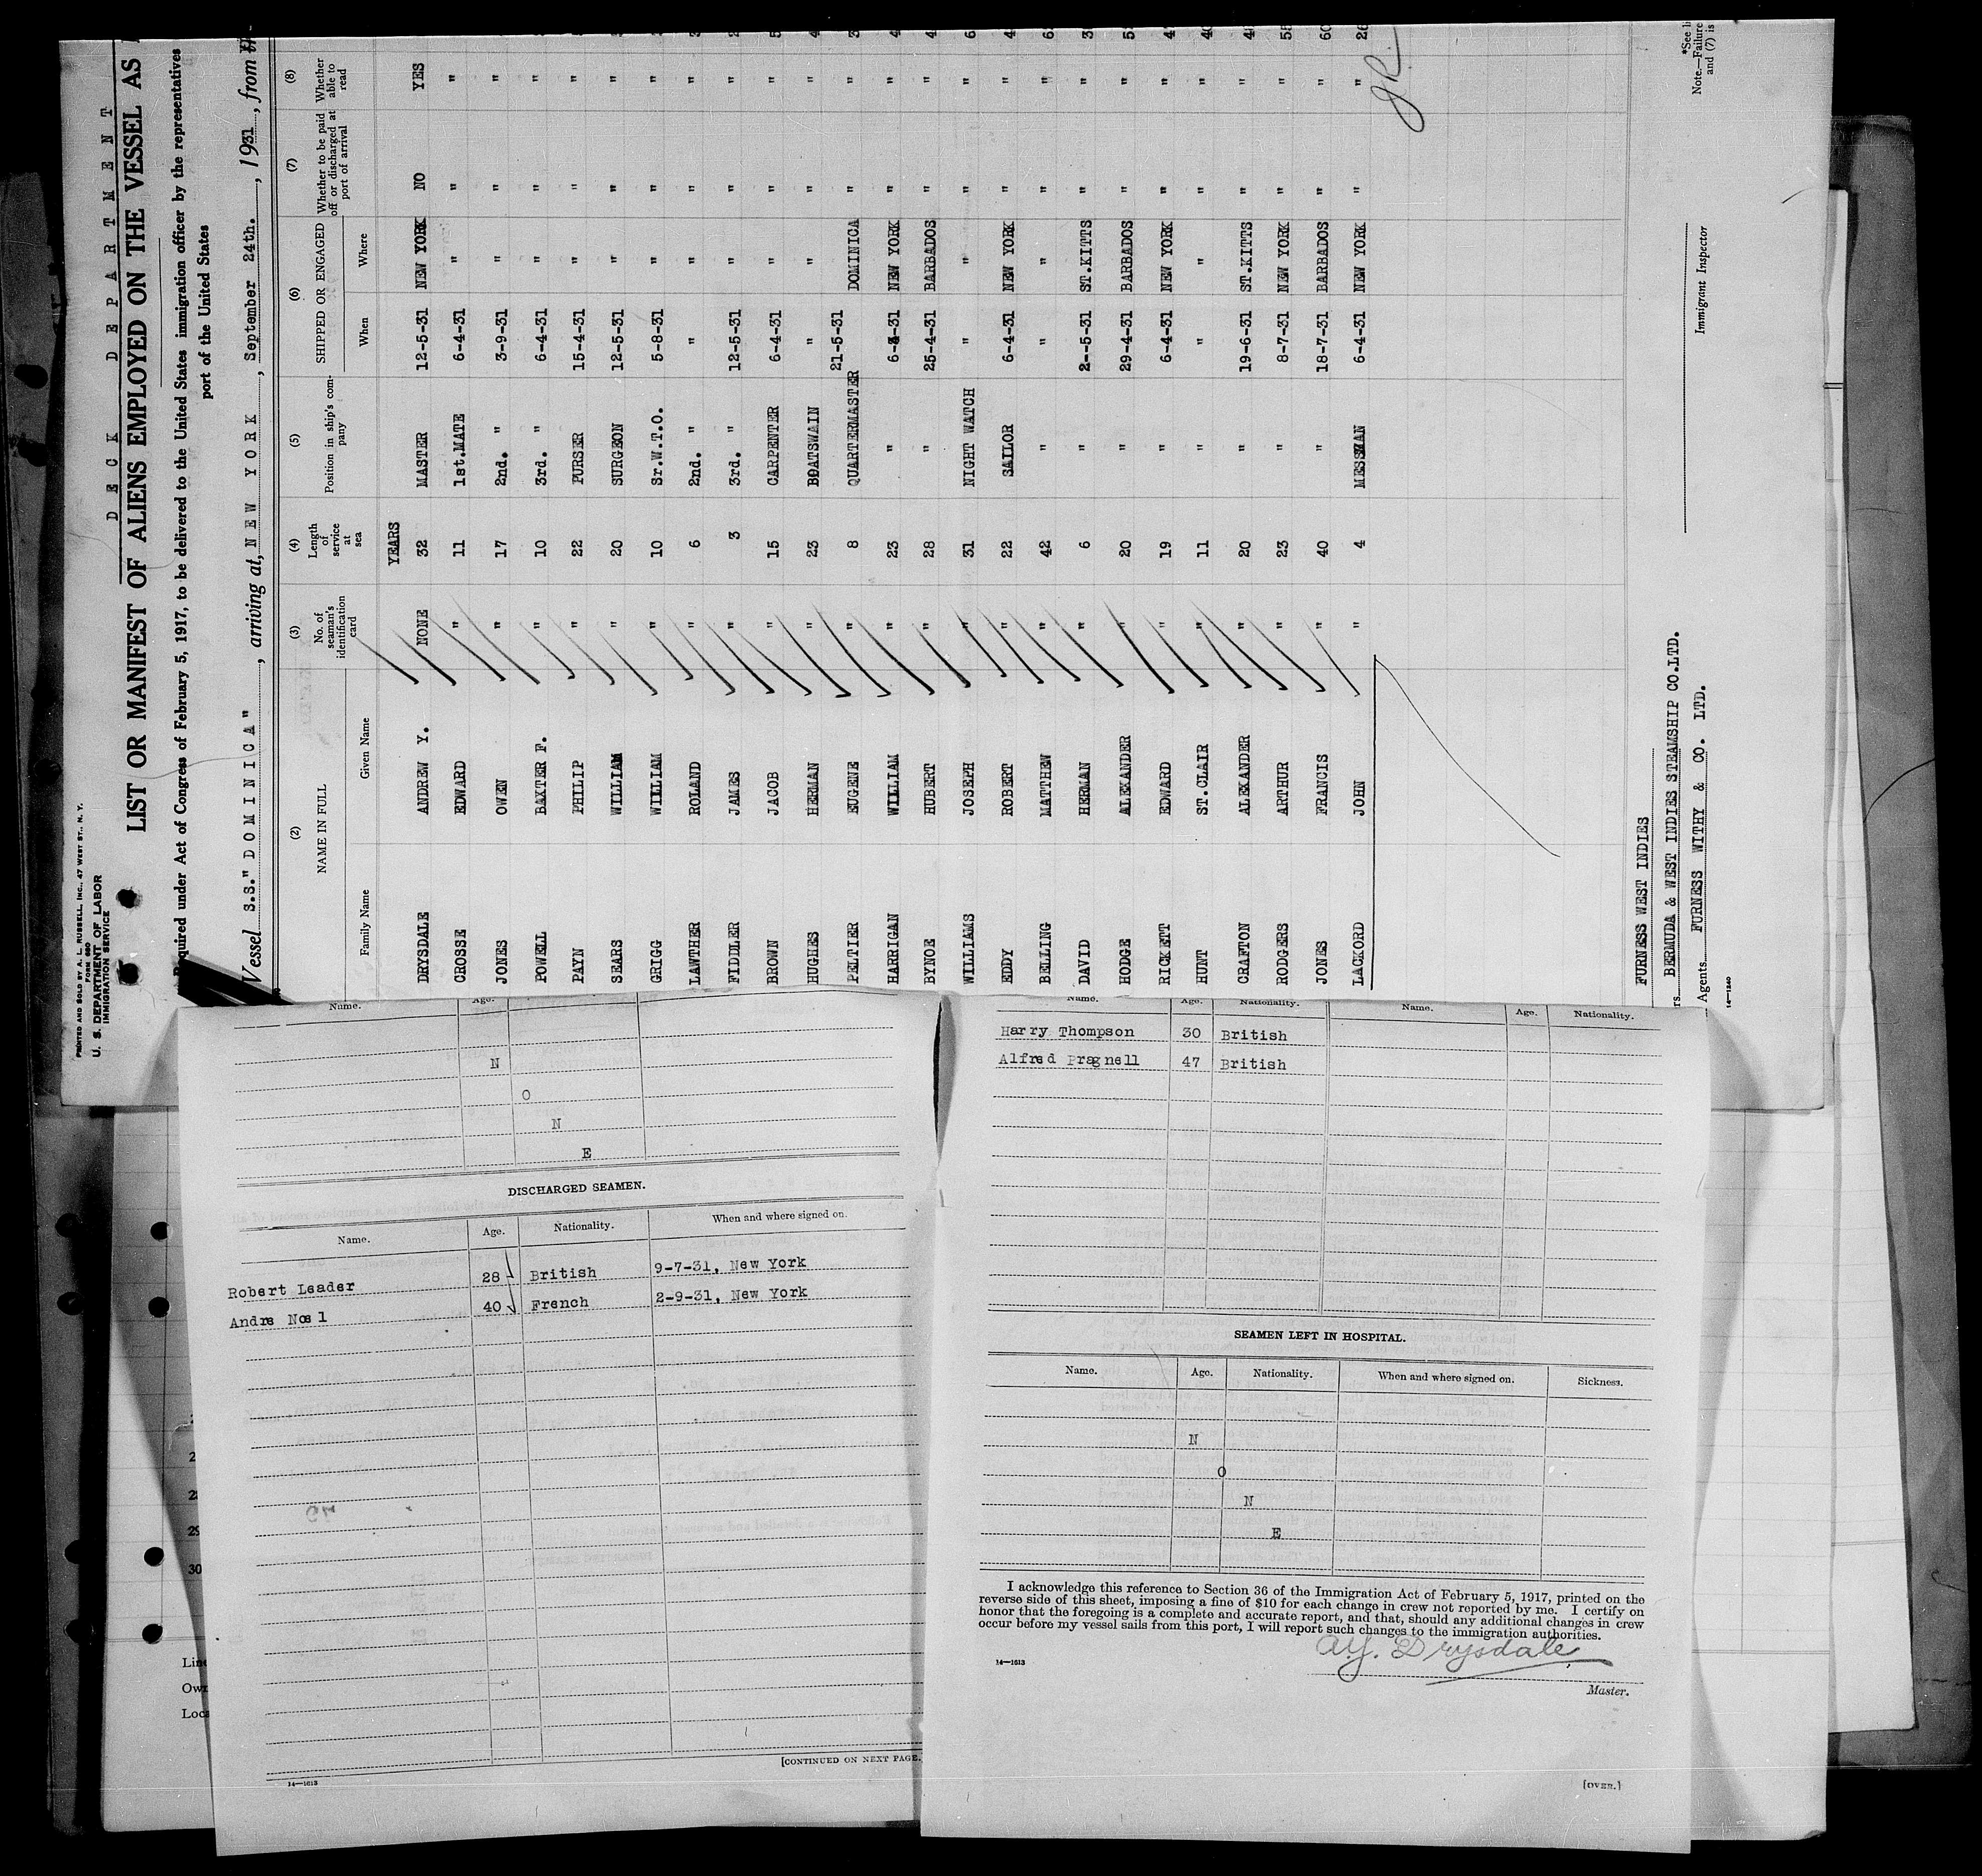 PRINTED AND SOLD BY A. L. RUSSELL, INC., 47 WEST ST., N. Y.
FORM 680
U. S. DEPARTMENT OF LABOR
IMMIGRATION SERVICE
DECK DEPARTMENT
LIST OR MANIFEST OF ALIENS EMPLOYED ON THE VESSEL AS
Required under Act of Congress of February 5, 1917, to be delivered to the United States immigration officer by the representatives
port of the United States
Vessel S.S."DOMINICA", arriving at, NEW YORK, September 24th., 1931, from
(2) (3) (4) (5) (6) (7) (8)
NAME IN FULL No. of seaman's identification card Length of service at sea Position in ship's company SHIPPED OR ENGAGED Whether to be paid off or discharged at port of arrival Whether able to read
Family Name Given Name When Where
YEARS
DRYSDALE ANDREW Y. NONE 32 MASTER 12-5-31 NEW YORK NO YES
CROSSE EDWARD " 11 1st.MATE 6-4-31 " " "
JONES OWEN " 17 2nd. " 3-9-31 " " "
POWELL BAXTER F. " 10 3rd. " 6-4-31 " " "
PAYN PHILIP " 22 PURSER 15-4-31 " " "
SEARS WILLIAM " 20 SURGEON 12-5-31 " " "
GRIGG WILLIAM " 10 Sr.W.T.O. 5-8-31 " " "
LAWTHER ROLAND " 6 2nd. " " " " "
FIDDLER JAMES " 3 3rd. " 12-5-31 " " "
BROWN JACOB " 15 CARPENTER 6-4-31 " " "
HUGHES HERMAN " 23 BOATSWAIN " " " "
PELTIER EUGENE " 8 QUARTERMASTER 21-5-31 DOMINICA " "
HARRIGAN WILLIAM " 23 " 6-4-31 NEW YORK " "
BYNOE HUBERT " 28 " 25-4-31 BARBADOS " "
WILLIAMS JOSEPH " 31 NIGHT WATCH " " " "
EDDY ROBERT " 22 SAILOR 6-4-31 NEW YORK " "
BELLING MATTHEW " 42 " " " " "
DAVID HERMAN " 6 " 2--5-31 ST.KITTS " "
HODGE ALEXANDER " 20 " 29-4-31 BARBADOS " "
RICKETT EDWARD " 19 " 6-4-31 NEW YORK " "
HUNT ST.CLAIR " 11 " " " " "
CRAFTON ALEXANDER " 20 " 19-6-31 ST.KITTS " "
RODGERS ARTHUR " 23 " 8-7-31 NEW YORK " "
JONES FRANCIS " 40 " 18-7-31 BARBADOS " "
LACKORD JOHN " 4 MESSMAN 6-4-31 NEW YORK " "
FURNESS WEST INDIES
BERMUDA & WEST INDIES STEAMSHIP CO.LTD.
Agents FURNESS WITHY & CO. LTD.
Immigrant Inspector
14—1240
*See li
Note.—Failure
and (7) is
Name. Age.
N
O
N
E
DISCHARGED SEAMEN.
Name. Age. Nationality. When and where signed on.
Robert Leader 28 British 9-7-31, New York
Andre Noel 40 French 2-9-31, New York
[CONTINUED ON NEXT PAGE.
14—1613
Name. Age. Nationality. Name. Age. Nationality.
Harry Thompson 30 British
Alfred Pragnell 47 British
SEAMEN LEFT IN HOSPITAL.
Name. Age. Nationality. When and where signed on. Sickness.
N
O
N
E
I acknowledge this reference to Section 36 of the Immigration Act of February 5, 1917, printed on the
reverse side of this sheet, imposing a fine of $10 for each change in crew not reported by me. I certify on
honor that the foregoing is a complete and accurate report, and that, should any additional changes in crew
occur before my vessel sails from this port, I will report such changes to the immigration authorities.
A.Y. Drysdale
14—1613
Master.
[OVER.]
29
30
Line
Own
Loca